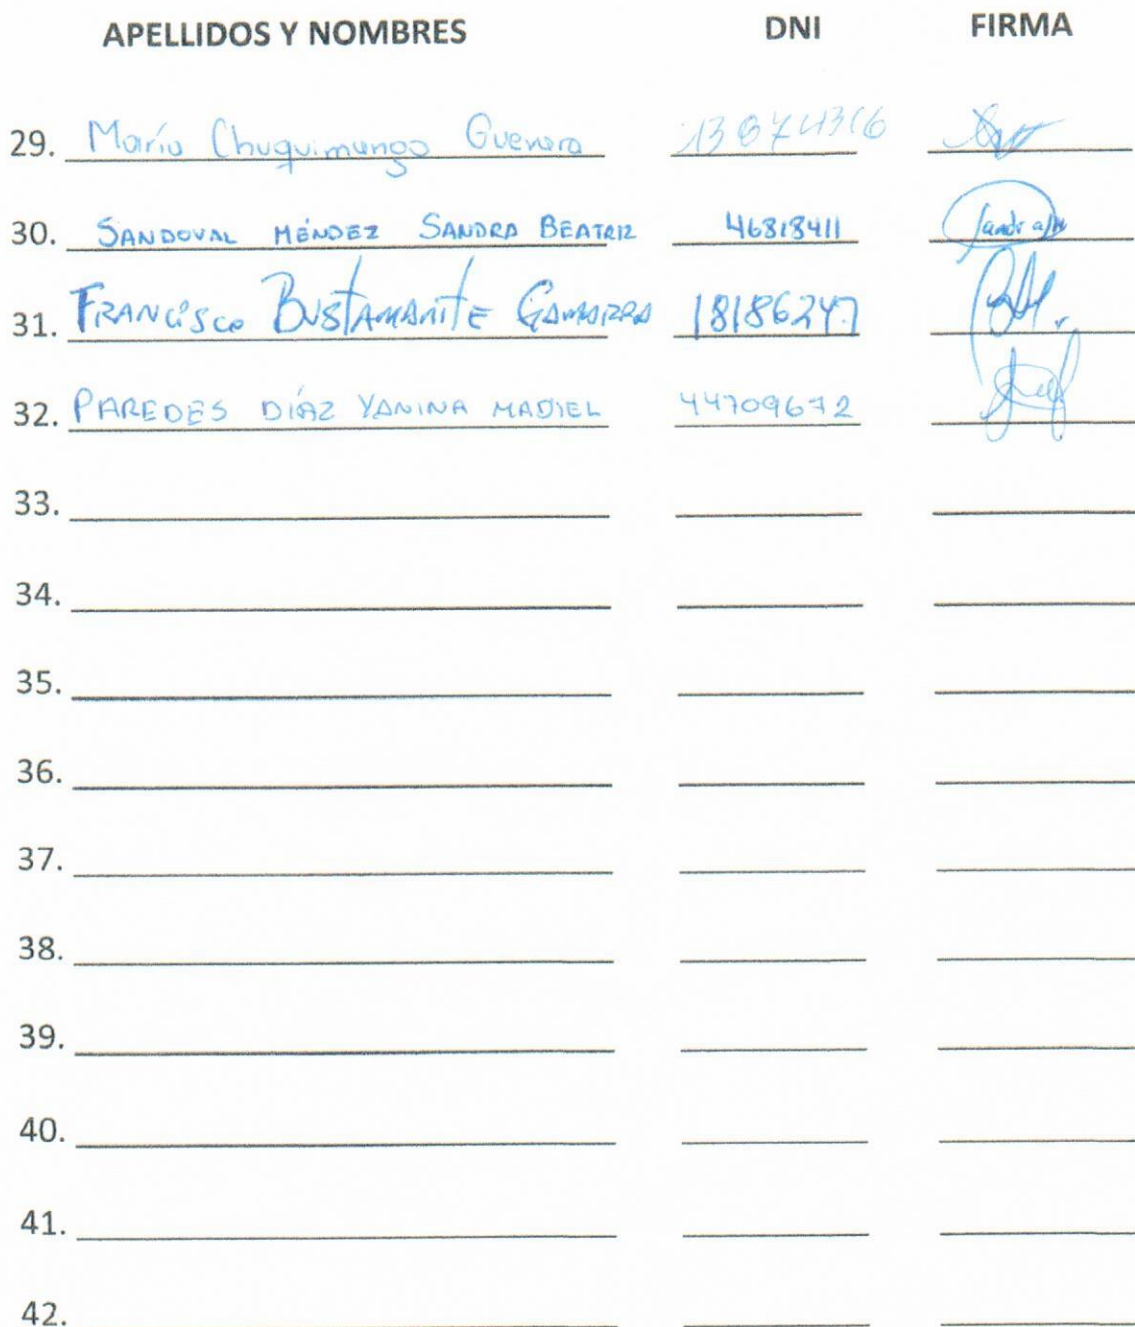 APELLIDOS Y NOMBRES DNI FIRMA
29. María Chuquimango Guevara
30. SANDOVAL MÉNDEZ SANDRA BEATRIZ 46818411
31. FRANCISCO BUSTAMANTE GAMARRA 18186247
32. PAREDES DÍAZ YANINA MADIEL 44709672
33.
34.
35.
36.
37.
38.
39.
40.
41.
42.